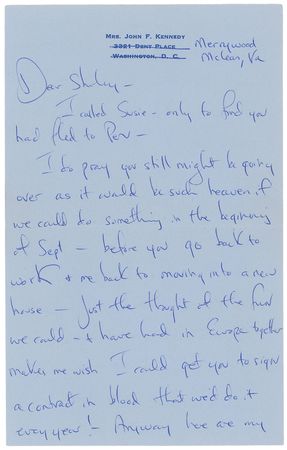 MRS. JOHN F. KENNEDY
3321 DENT PLACE
WASHINGTON, D. C.
Merrywood
McLean, Va
Dear Shirley –
I called Susie – only to find you
had fled to Peru –
I do pray you still might be going
over as it would be such heaven if
we could do something in the beginning
of Sept – before you go back to
work & me back to moving into a new
house – Just the thought of the fun
we could – & have had in Europe together
makes me wish I could get you to sign
a contract in blood that we'd do it
every year! – Anyway here are my